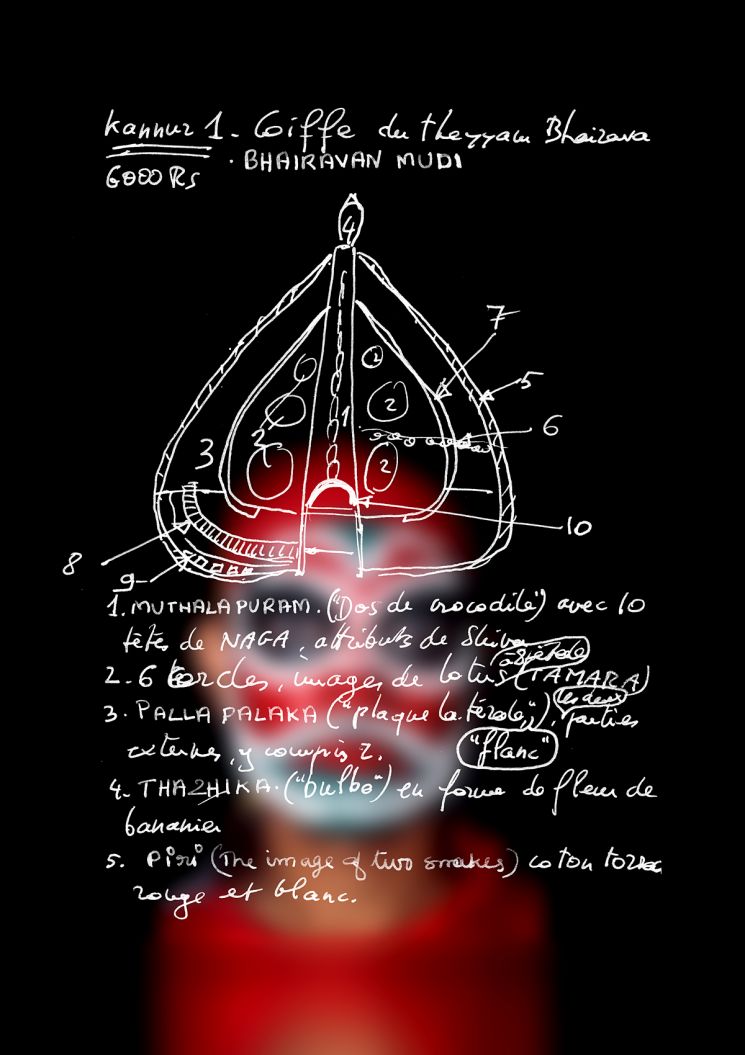 Kannur 1 - Coiffe du theyyam Bhairava
6000 Rs . BHAIRAVAN MUDI
4
7
5
1
2
2
6
3
2
2
10
8
9
1. MUTHALAPURAM. ("Dos de crocodile") avec 10
têtes de NAGA, attributs de Shiva
2. 6 cercles, images de lotus (TAMARA)
3. PALLA PALAKA ("plaque latérale"), les deux parties
externes, y compris 2. "flanc"
4. THAZHIKA. ("bulbe") en forme de fleur de
bananier
5. Piri (The image of two snakes) coton
rouge et blanc.